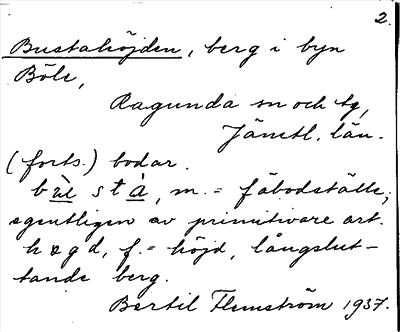 2.
Bustahöjden, berg i byn
Böle,
Ragunda sn och tg,
Jämtl. län.
(forts.) bodar.
sta, m. = fäbodställe,
egentligen av primitivare art.
f. = höjd, långslut-
tande berg.
Bertil Flemström 1937.